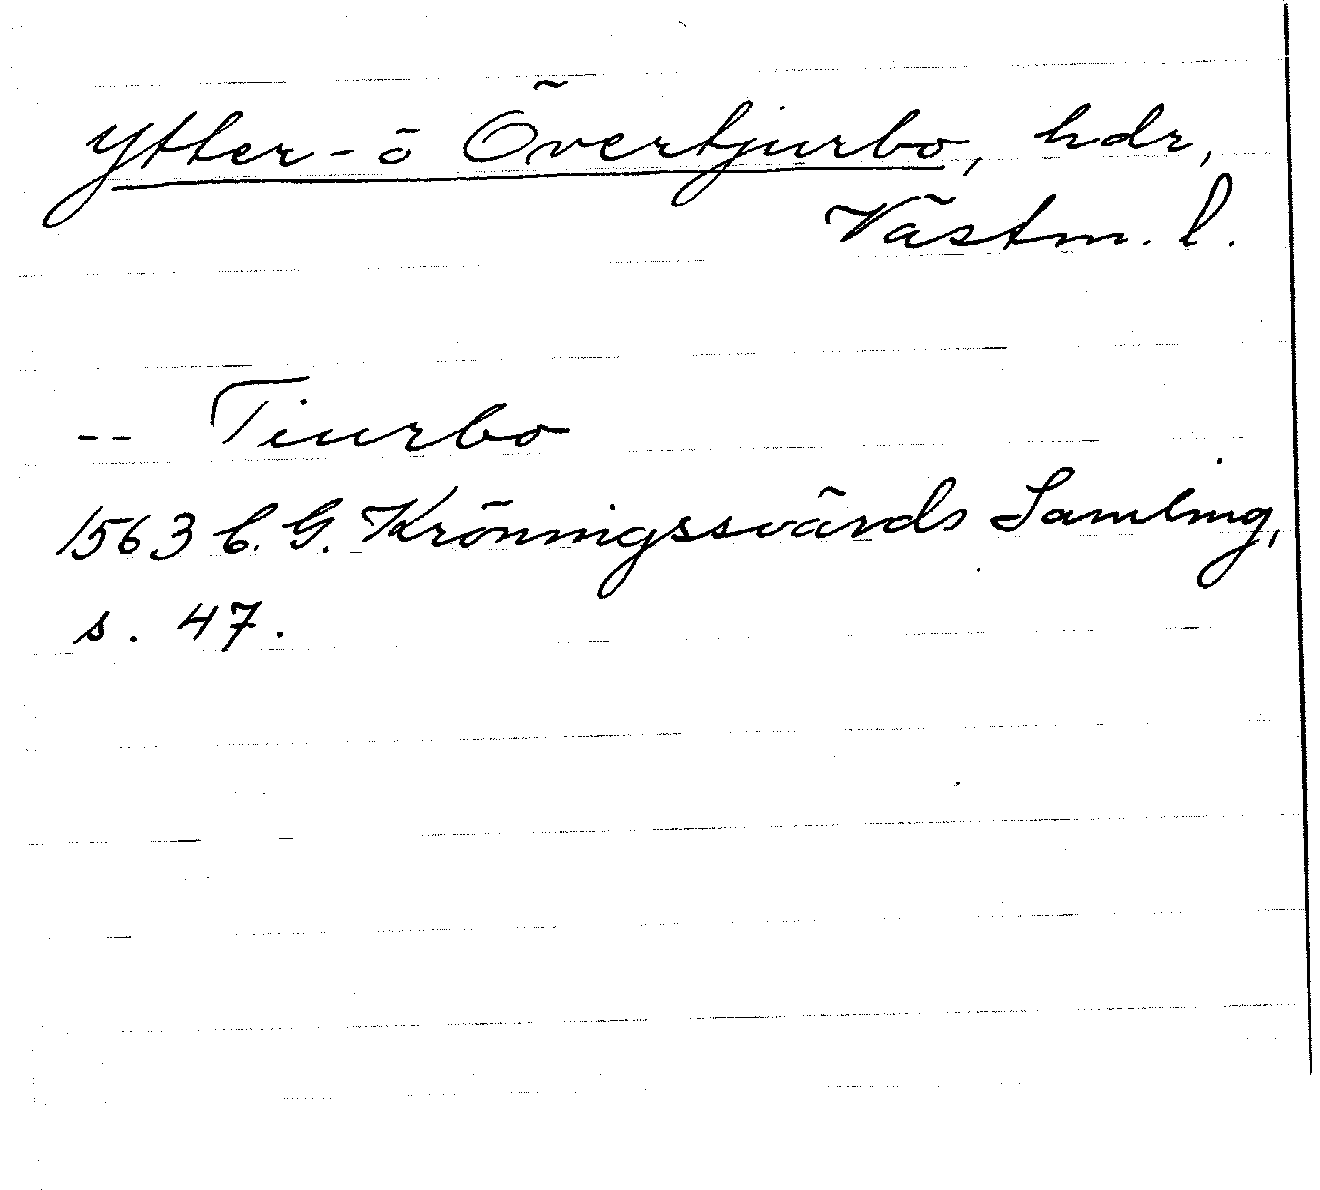 Ytter- ö Övertjurbo, hdr,
Västm. l.
-- Tiurbo
1563 C. G. Kröningssvärds Samling,
s. 47.